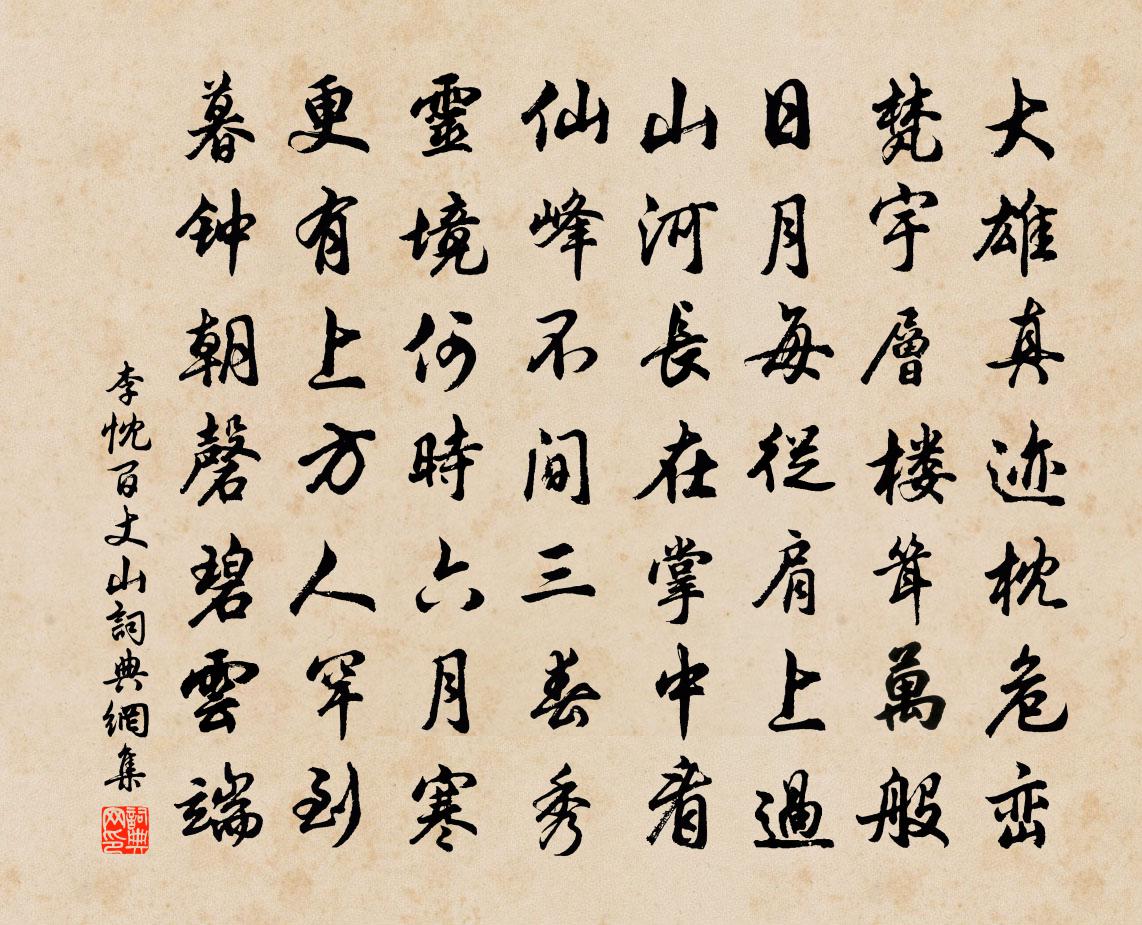 大雄真迹枕危峦
梵宇層楼耸萬般
日月每從肩上過
山河長在掌中看
仙峰不间三春秀
靈境何時六月寒
更有上方人罕到
暮钟朝磬碧雲端
李忱百丈山詞典網集
詞典网印